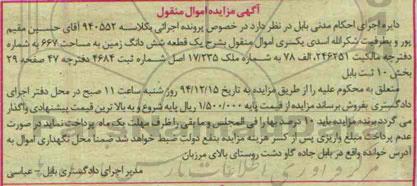 آگهی مزایده اموال منقول
دایره اجرای احکام مدنی بابل در نظر دارد در خصوص پرونده اجرائی بکلاسه ۹۴۰۵۵۲ آقای حسین مقیم
پور و بطرفیت شکرالله اسدی یکسری اموال منقول بشرح یک قطعه شش دانگ زمین به مساحت ۶۶۷ به شماره
دفترچه مالکیت ۲۴۶۲۵۱، الف ۷۸ به شماره ملک ۱۷/۲۳۵ اصل شماره ثبت ۴۶۸۴ دفترچه ۴۷ صفحه ۲۹
بخش ۱۰ ثبت بابل
متعلق به محکوم علیه را از طریق مزایده به تاریخ ۹۴/۱۲/۱۵ روز شنبه ساعت ۱۱ صبح در محل دفتر اجرای
دادگستری بفروش برساند مزایده از قیمت پایه ۱/۵۰۰/۰۰۰ ریال پایه شروع و به بالاترین قیمت پیشنهادی واگذار
می گردد برنده مزایده باید ۱۰ درصد بها را فی المجلس و مابقی را ظرف مهلت یک ماه پرداخت نماید در صورت
عدم پرداخت مبلغ واریزی پس از کسر هزینه مزایده بنفع دولت ضبط خواهد شد ضمنا محل نگهداری اموال به
آدرس خوانده واقع در بابل جاده گاو دشت روستای بالای مرزبان
مدیر اجرای دادگستری بابل - عباسی